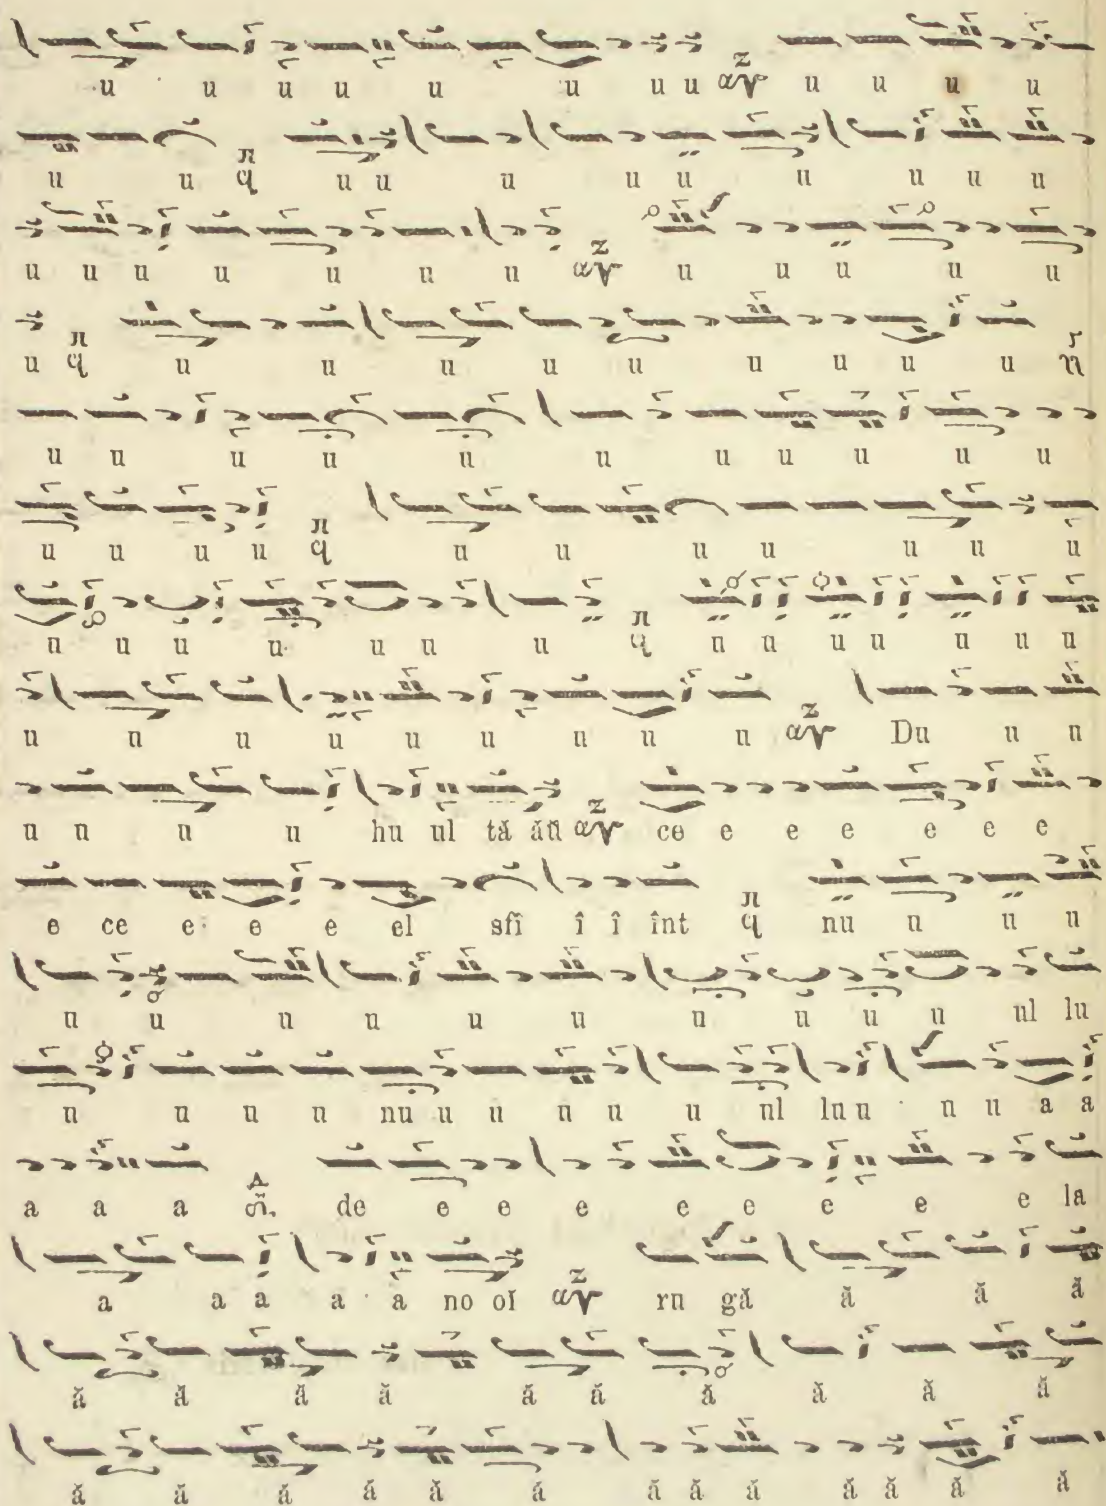 u u u u u u u u u u u u
u u u u u u u u u u u
u u u u u u u u u u u u
u u u u u u u u u u
u u u u u u u u u u u
u u u u u u u u u u u
u u u u u u u u u u u u u u
u u u u u u u u u Du u u
u u u u hu ul tă ăŭ ce e e e e e e
e ce e e e el sfî î î înt nu u u u
u u u u u u u u u u ul lu
u u u u nu u u u u u ul luu u u a a
a a a de e e e e e e e e la
a a a a a no oĭ ru gă ă ă ă
ă ă ă ă ă ă ă ă ă ă
ă ă ă ă ă ă ă ă ă ă ă ă ă